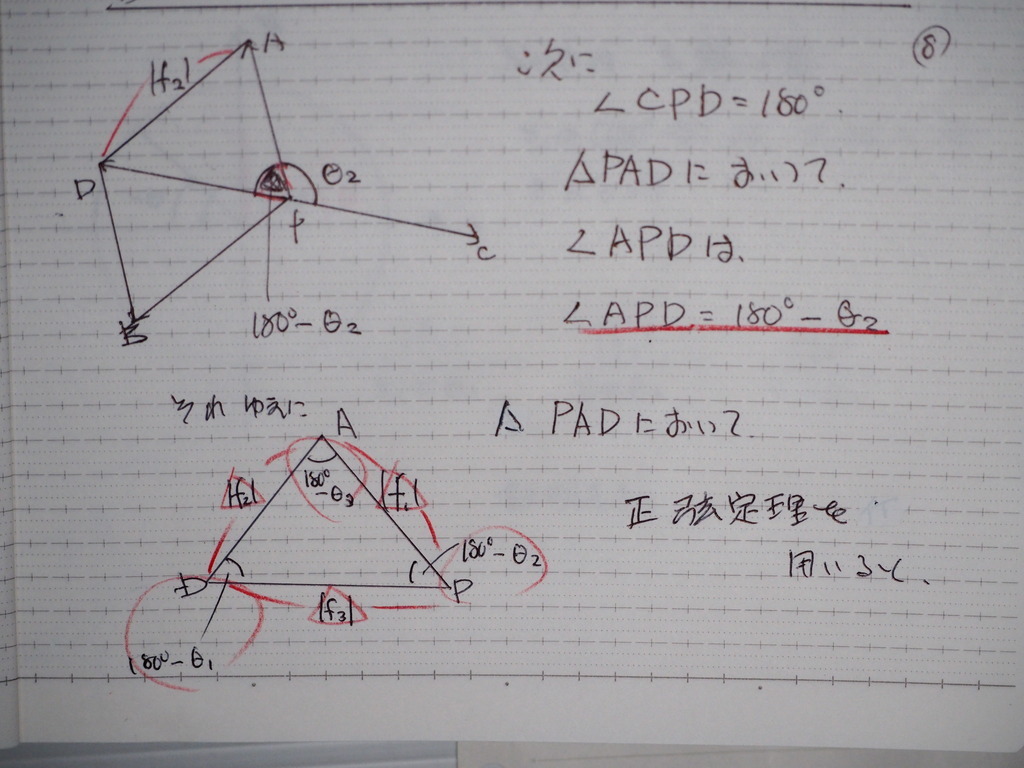 ⑧
A
|f₂|
D
θ₂
P
C
B
180°-θ₂
次に
∠CPD=180°.
△PADにおいて、
∠APDは、
∠APD=180°-θ₂
それゆえに
A
180°-θ₃
|f₂|
|f₁|
180°-θ₂
D
P
|f₃|
180°-θ₁
△PADにおいて
正弦定理を
用いると、